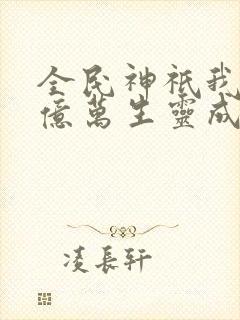 全民神祇我
億萬生靈成
凌長軒